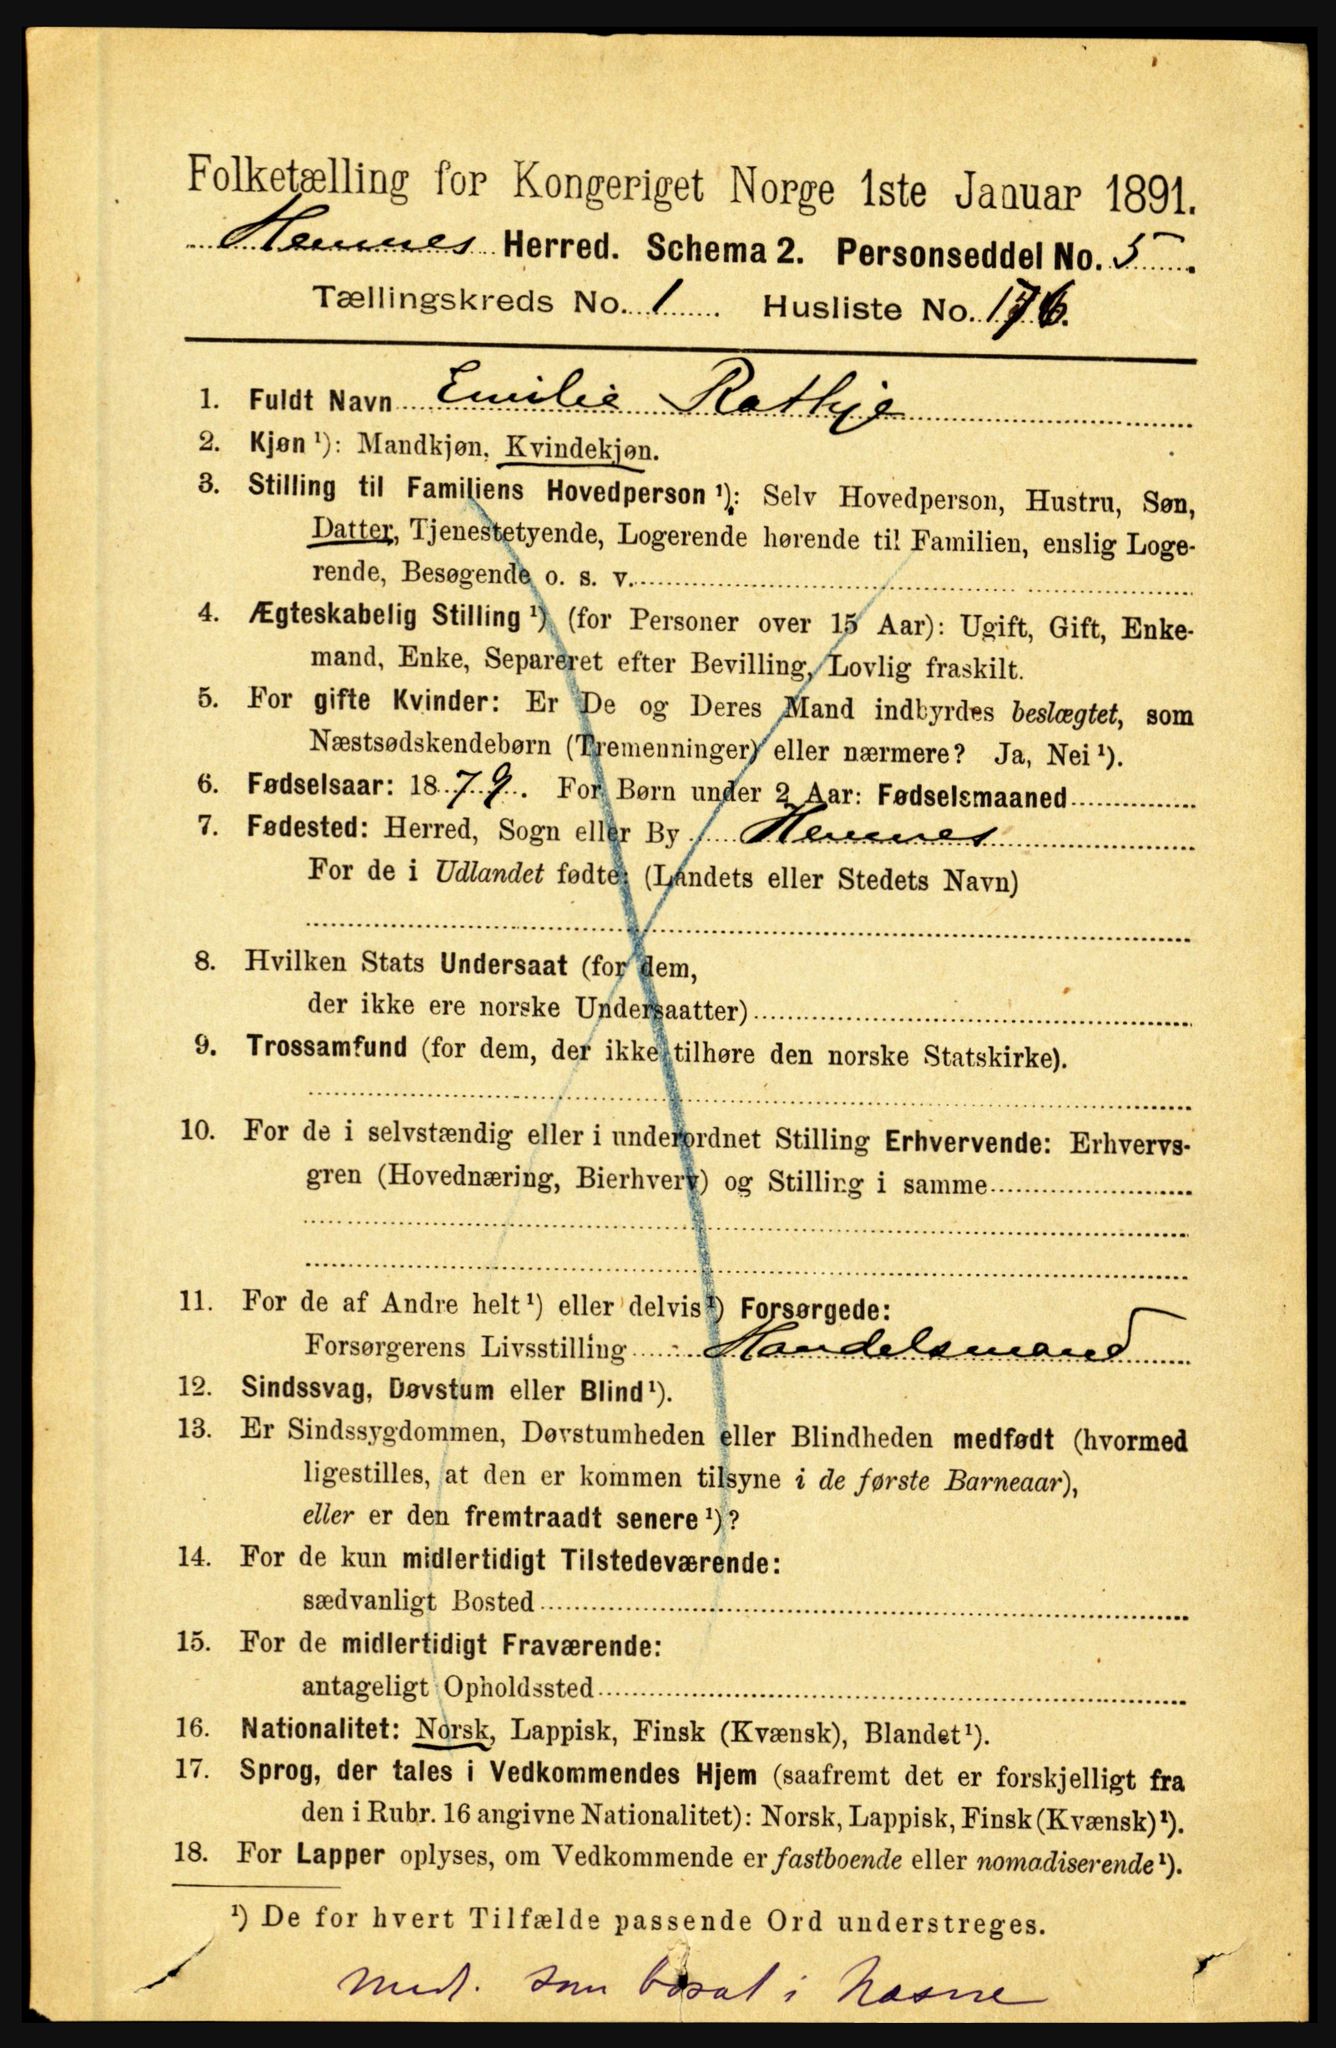 Folketælling for Kongeriget Norge 1ste Januar 1891.
Hemnes Herred. Schema 2. Personseddel No. 5.
Tællingskreds No. 1 Husliste No. 176.
1. Fuldt Navn Emilie Rathje
2. Kjøn ¹): Mandkjøn, Kvindekjøn.
3. Stilling til Familiens Hovedperson ¹): Selv Hovedperson, Hustru, Søn,
Datter, Tjenestetyende, Logerende hørende til Familien, enslig Loge-
rende, Besøgende o. s. v.
4. Ægteskabelig Stilling ¹) (for Personer over 15 Aar): Ugift, Gift, Enke-
mand, Enke, Separeret efter Bevilling, Lovlig fraskilt.
5. For gifte Kvinder: Er De og Deres Mand indbyrdes beslægtet, som
Næstsødskendebørn (Tremenninger) eller nærmere? Ja, Nei ¹).
6. Fødselsaar: 1879. For Børn under 2 Aar: Fødselsmaaned
7. Fødested: Herred, Sogn eller By Hemnes
For de i Udlandet fødte: (Landets eller Stedets Navn)
8. Hvilken Stats Undersaat (for dem,
der ikke ere norske Undersaatter)
9. Trossamfund (for dem, der ikke tilhøre den norske Statskirke).
10. For de i selvstændig eller i underordnet Stilling Erhvervende: Erhvervs-
gren (Hovednæring, Bierhverv) og Stilling i samme
11. For de af Andre helt ¹) eller delvis ¹) Forsørgede:
Forsørgerens Livsstilling Handelsmand
12. Sindssvag, Døvstum eller Blind ¹).
13. Er Sindssygdommen, Døvstumheden eller Blindheden medfødt (hvormed
ligestilles, at den er kommen tilsyne i de første Barneaar),
eller er den fremtraadt senere ¹)?
14. For de kun midlertidigt Tilstedeværende:
sædvanligt Bosted
15. For de midlertidigt Fraværende:
antageligt Opholdssted
16. Nationalitet: Norsk, Lappisk, Finsk (Kvænsk), Blandet ¹).
17. Sprog, der tales i Vedkommendes Hjem (saafremt det er forskjelligt fra
den i Rubr. 16 angivne Nationalitet): Norsk, Lappisk, Finsk (Kvænsk) ¹).
18. For Lapper oplyses, om Vedkommende er fastboende eller nomadiserende ¹).
¹) De for hvert Tilfælde passende Ord understreges.
Medt. som bosat i Næsne